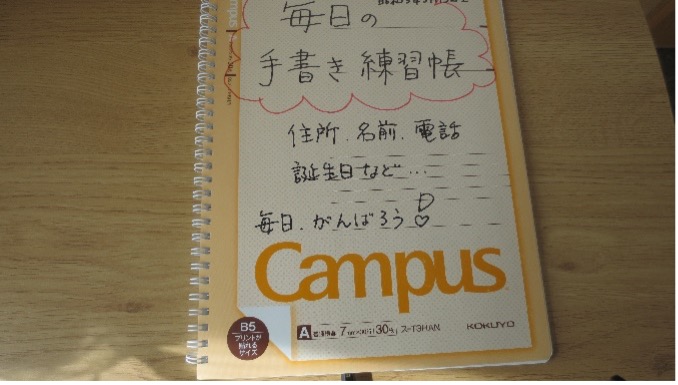 Campus
毎日の
手書き練習帳
住所、名前、電話
誕生日など…
毎日、がんばろう
Campus
B5
プリントが
貼れる
サイズ
A 7mm 30
KOKUYO